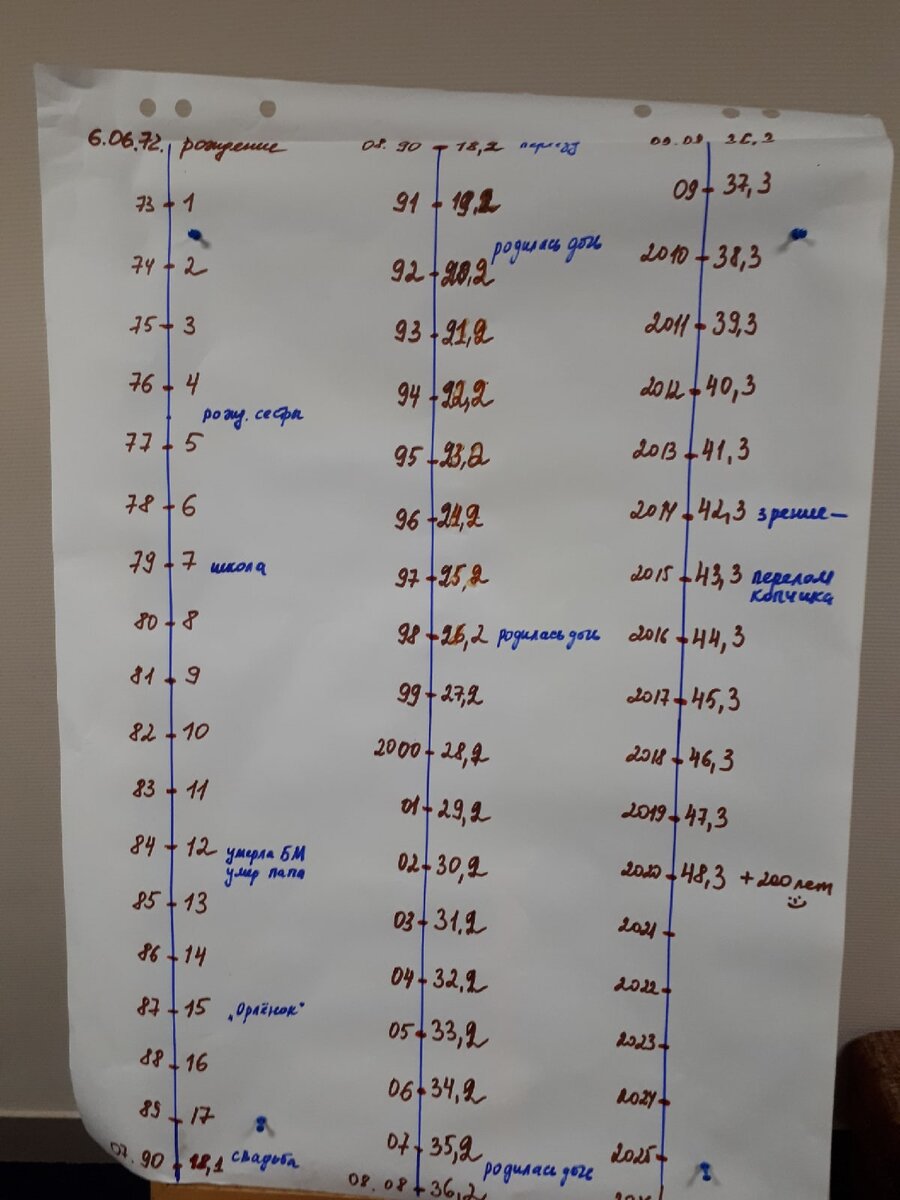 6.06.72. рождение
73 1
74 2
75 3
76 4
рожд. сестры
77 5
78 6
79 7 школа
80 8
81 9
82 10
83 11
84 12 умерла БМ
умер папа
85 13
86 14
87 15 „Орлёнок"
88 16
89 17
07.90 18,1 свадьба
08.90 18,2 переезд
91 19,2
родилась дочь
92 20,2
93 21,2
94 22,2
95 23,2
96 24,2
97 25,2
98 26,2 родилась дочь
99 27,2
2000 28,2
01 29,2
02 30,2
03 31,2
04 32,2
05 33,2
06 34,2
07 35,2
родилась дочь
08.08 36,2
09.08 36,3
09 37,3
2010 38,3
2011 39,3
2012 40,3
2013 41,3
2014 42,3 зрение —
2015 43,3 перелом
копчика
2016 44,3
2017 45,3
2018 46,3
2019 47,3
2020 48,3 + 200 лет
2021
2022
2023
2024
2025